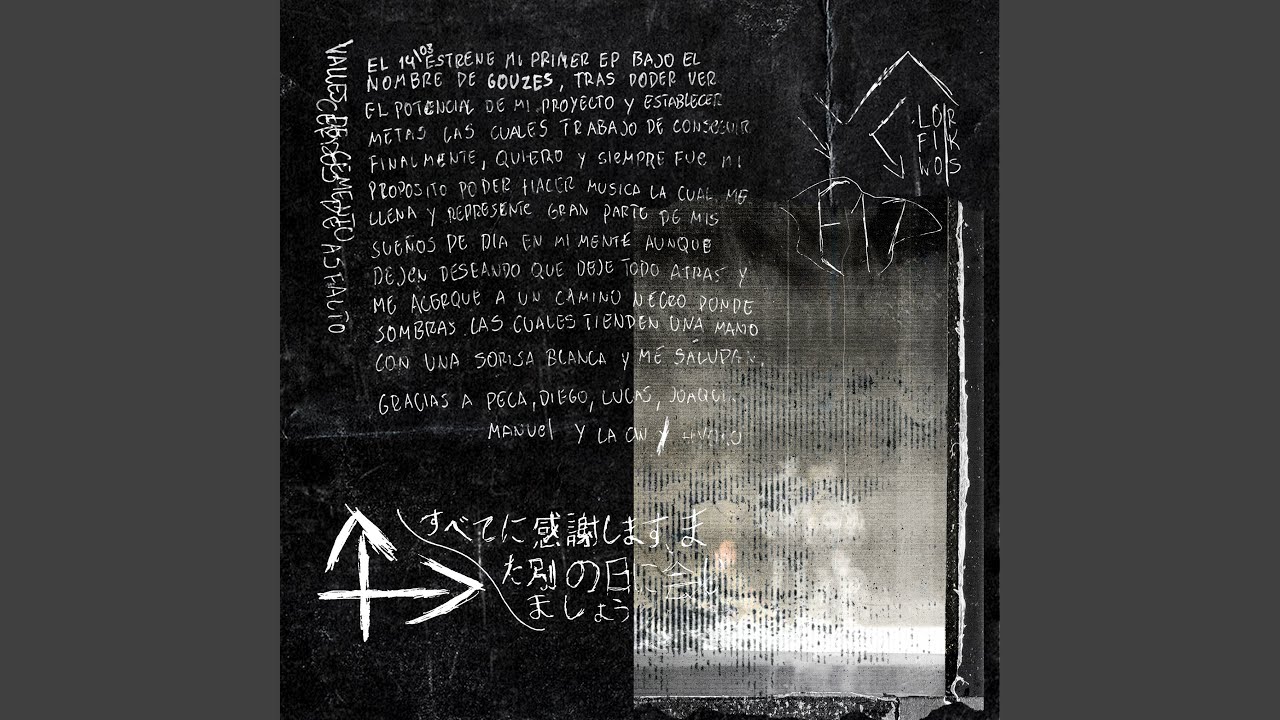 EL 14\03 ESTRENE MI PRIMER EP BAJO EL
NOMBRE DE GOUZES, TRAS PODER VER
EL POTENCIAL DE MI PROYECTO Y ESTABLECER
METAS LAS CUALES TRABAJO DE CONSEGUIR
FINALMENTE, QUIERO Y SIEMPRE FUE MI
PROPOSITO PODER HACER MUSICA LA CUAL ME
LLENA Y REPRESENTE GRAN PARTE DE MIS
SUEÑOS DE DIA EN MI MENTE AUNQUE
DEJEN DESEANDO QUE DEJE TODO ATRAS Y
ME ACERQUE A UN CAMINO NEGRO DONDE
SOMBRAS LAS CUALES TIENDEN UNA MANO
CON UNA SORISA BLANCA Y ME SALUDAN.
GRACIAS A PECA, DIEGO, LUCAS,
MANUEL Y LA
LO|R
FI|K
WO|S
すべてに感謝します、ま
た別の日に会い
ましょう